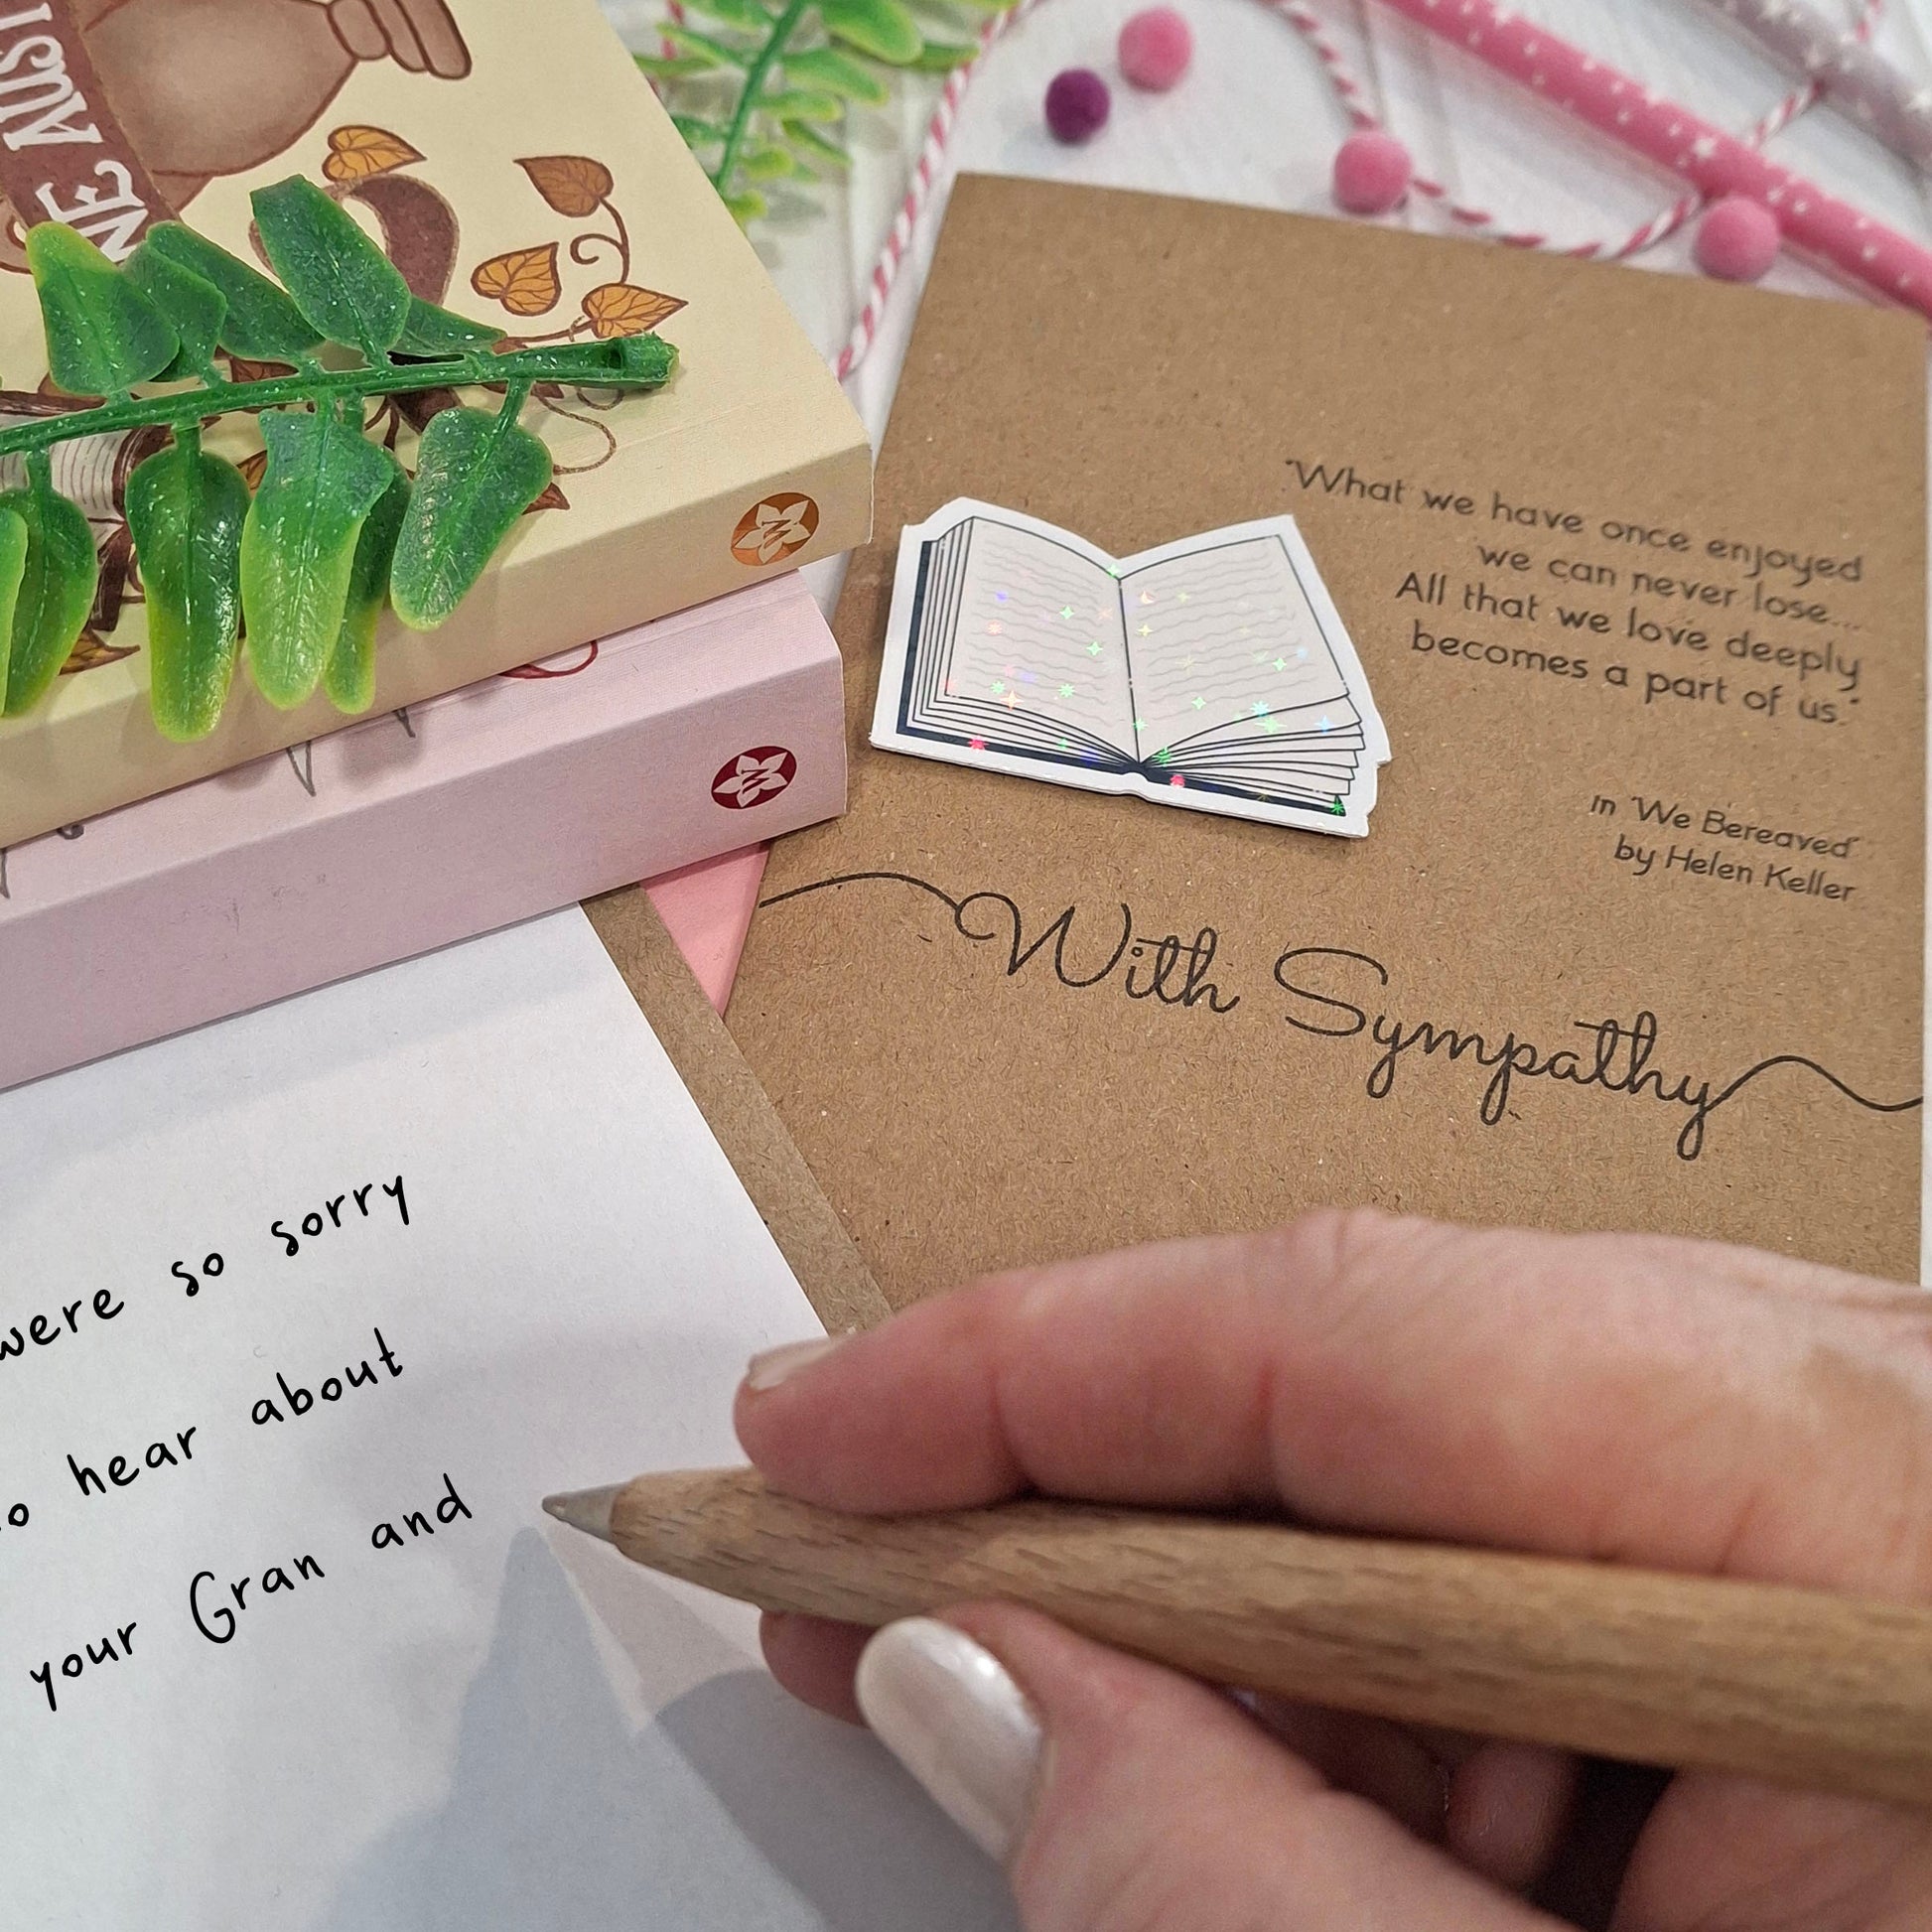 "What we have once enjoyed
we can never lose...
All that we love deeply
becomes a part of us."
in "We Bereaved"
by Helen Keller
With Sympathy
were so sorry
hear about
your Gran and